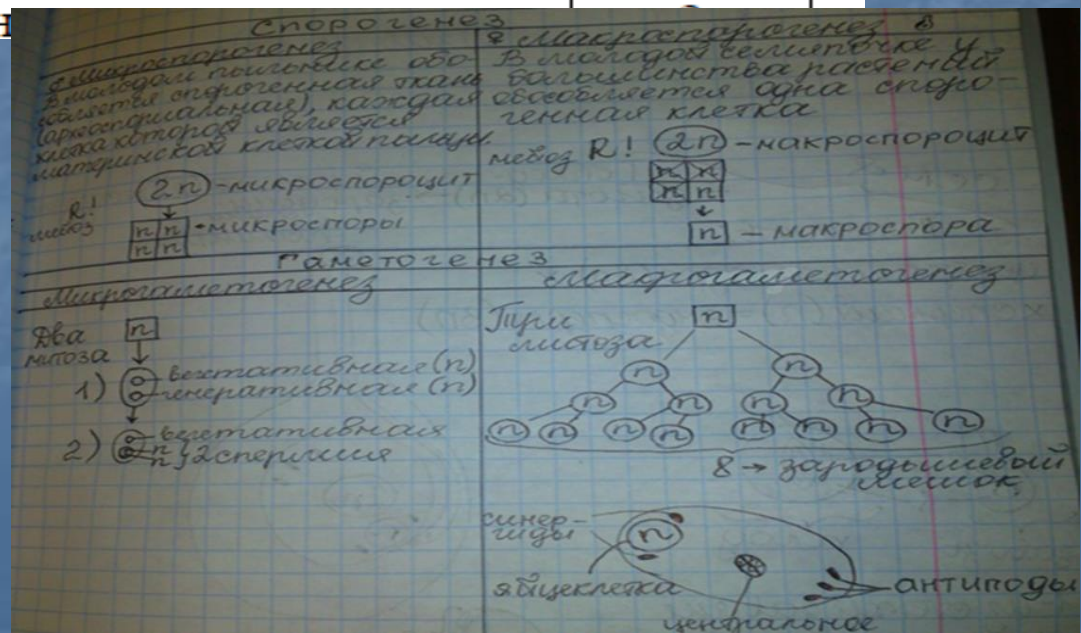 н
Спорогенез
♂ Микроспорогенез
В молодом пыльнике обо-
собляется спорогенная ткань
(археспориальная), каждая
клетка которой является
материнской клеткой пыльцы.
R!
мейоз
2n - микроспороцит
n n - микроспоры
n n
♀ Макроспорогенез
В молодой семяпочке у
большинства растений
обособляется одна споро-
генная клетка
мейоз R! 2n - макроспороцит
n n
n n
n - макроспора
Гаметогенез
Микрогаметогенез
Два
митоза
n
1) вегетативная (n)
генеративная (n)
2) вегетативная
n
n } 2 спермия
Макрогаметогенез
Три
митоза
n
n n
n n n n
n n n n n n n n
8 → зародышевый
мешок
синер-
гиды
n
яйцеклетка
антиподы
центральное